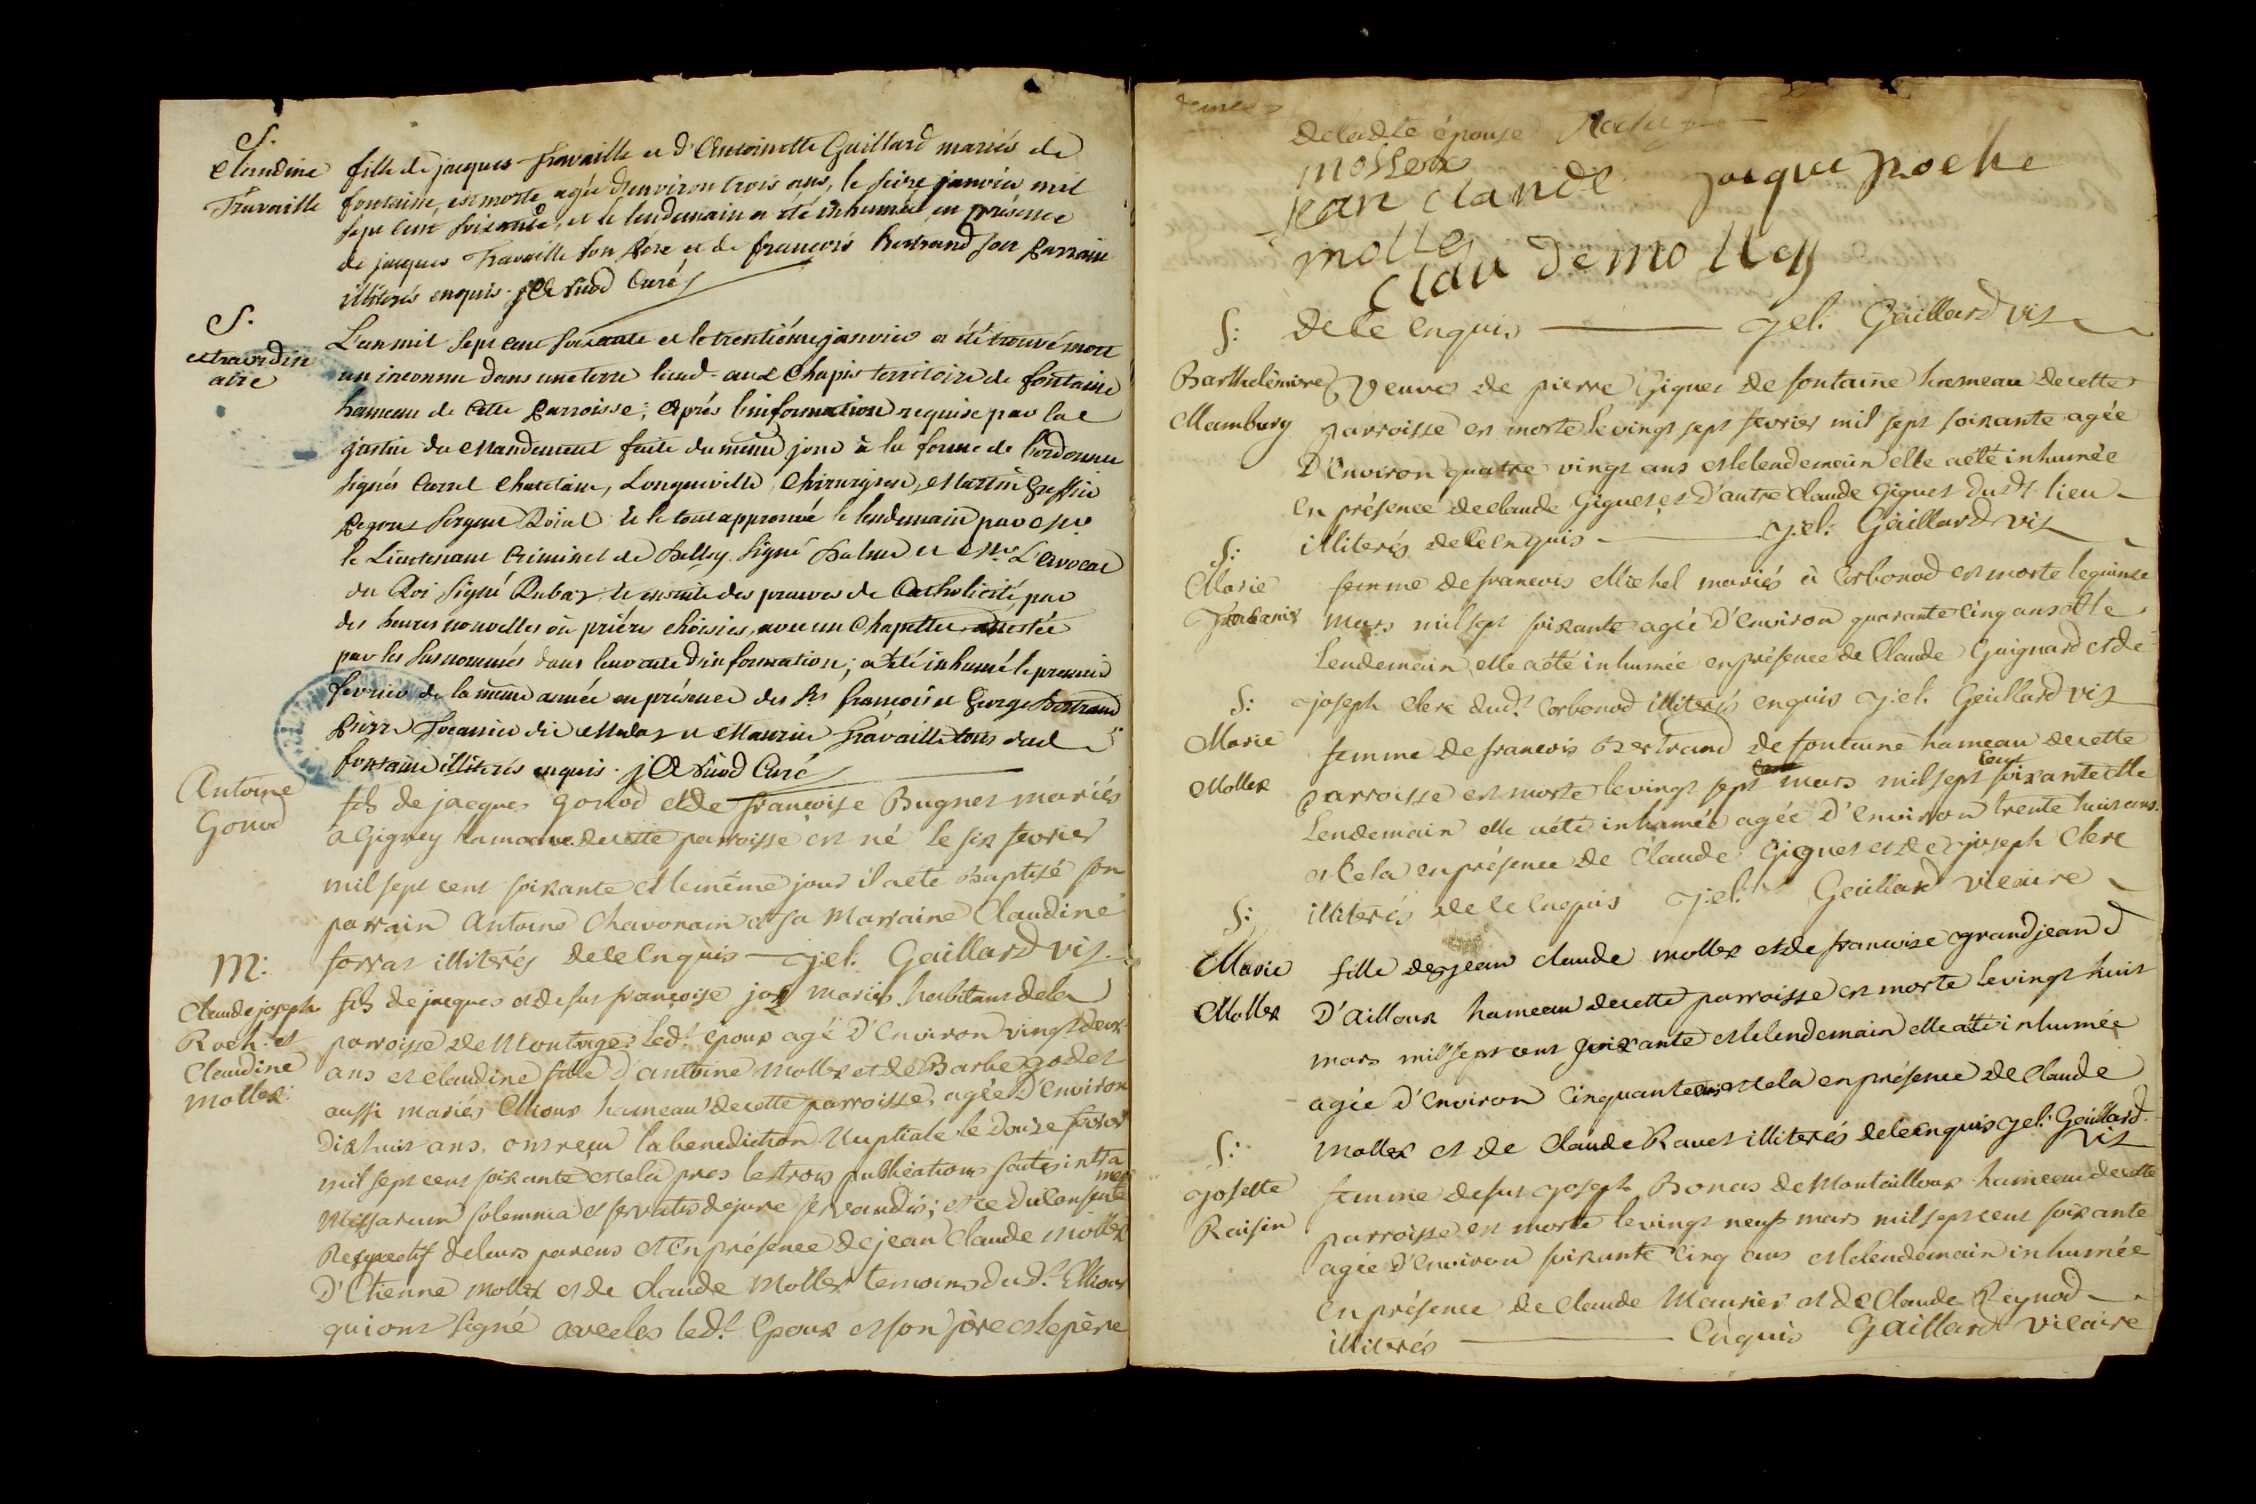 S.
Claudine
Travaille
fille de jacques Travaille et d'Antoinette Gaillard mariés de
fontaine, est morte agée d'environ trois ans, le seize janvier mil
sept cent soixante, et le lendemain a été inhumée en présence
de jacques Travaille son Père et de françois Bertrand son Parrain
illiterés enquis. Curé
S.
extraordin
aire
L'an mil sept cent soixante et le trentiéme janvier a été trouvé mort
un inconnu dans une terre lieud. aux Chapis territoire de fontaine
hameau de Cette Parroisse; Après l'information requise par la
justice du Mandement faite du même jour à la forme de l'ordonnce
signés Carrel Chatelain, Longueville Chirurgien, Martin Greffier
sergent Roial. Et le tout approuvé le lendemain par Mr
le Lieutenant Criminel de Belley signé et Mr L'avocat
du Roi signé Rubat et ensuite des preuves de Catholicité par
des heures nouvelles ou priéres choisies, avec un Chapellet, attestée
par les susnommés dans leur acte d'information; a été inhumé le premier
fevrier de la même année en présence des Srs françois et George Bertrand
Pierre dit et Maurice Travaille tous dud.
fontaine illiterés enquis. Curé
Antoine
Gonod
fils de jacques gonod et de françoise Bugnet mariés
a Gigney hameau de cette parroisse est né le six fevrier
mil sept cent soixante et le même jour il a eté Baptisé son
parrain Antoine Chavonain et sa Marraine Claudine
forrat illiterés de ce Enquis jel. Gaillard vis.
M:
Claude joseph
Roch. et
Claudine
mollex.
fils de jacques et de fut françoise joz mariés habitans de la
parroisse de Montange. led.t epoux agé D'environ vingt deux
ans et claudine fille d'antoine mollex et de Barbe godet
aussi mariés Ellioux hameau de cette parroisse, agée D'environ
Dix huit ans, ont reçu la benediction Nuptiale le Douze fevrier
mil sept cent soixante et cela pres les trois publications faites intra
Missarum solemnia et servatis de jure servandis; et ce du Consente
ment
Respectif de leurs parens et En présence de jean Claude mollex
D'Etienne mollex et de Claude Mollex temoins dud.t Ellioux
qui ont signé avec les led.t Epoux et son pere et le père
de lad.te épouse
mollex
jean claude jaque Roche
mollex
clau de mollex
de ce enquis jel. Gaillard vis
S:
Barthelémiere
Mamburg
Veuve de pierre Giguet de fontaine hameau de cette
parroisse est morte le vingt sept fevrier mil sept soixante agée
D'Environ quatre vingt ans et le lendemain elle a été inhumée
en présence de claude Giguet et D'autre Claude Giguet dud.t lieu
illiterés de ce enquis jel. Gaillard vis
S:
Marie
femme de francois Michel mariés à Corbonod est morte le quinze
Mars mil sept soixante agée D'environ quarante cinq ans et le
lendemain elle a été inhumée en présence de Claude Guignard et de
joseph clerc dud.t Corbonod illiterés enquis jel. Gaillard vis
S:
Marie
Mollex
femme de francois Bertrand de fontaine hameau de cette
parroisse est morte le vingt sept mars mil sept cent soixante et le
Lendemain elle a été inhumée agée D'environ trente huit ans.
et cela en présence de Claude Giguet et de joseph Clerc
illiterés de ce enquis jel. Gaillard vicaire
S:
Marie
Mollex
fille de jean claude mollex et de francoise grandjean d
D'ailloux hameau de cette parroisse est morte le vingt huit
mars mil sept cent soixante et le lendemain elle a été inhumée
agée D'environ cinquante ans et cela en présence de Claude
mollex et de Claude Ravet illiterés de ce enquis jel. Gaillard
vis
S:
josette
Raisin
femme de fut joseph Bonas de Montailloux hameau de cette
parroisse est morte le vingt neuf mars mil sept cent soixante
agée D'environ soixante cinq ans et le lendemain inhumée
en présence de claude Meurier et de Claude Reynod
illiterés Enquis Gaillard vicaire